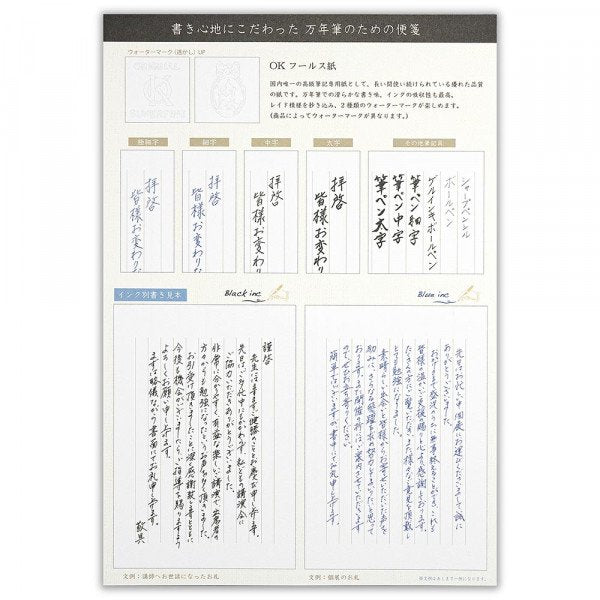 書き心地にこだわった 万年筆のための便箋
ウォーターマーク(透かし) UP
OK フールス紙
国内唯一の高級筆記専用紙として、長い間使い続けられている優れた品質
の紙です。万年筆での滑らかな書き味、インクの吸収性も最高。
レイド模様を抄き込み、2種類のウォーターマークが楽しめます。
(商品によってウォーターマークが異なります。)
極細字
細字
中字
太字
その他筆記具
拝啓
皆様お変わりな
拝啓
皆様お変わりな
拝啓
皆様お変わり
拝啓
皆様お変わ
シャープペンシル
ボールペン
ゲルインキボールペン
筆ペン細字
筆ペン中字
筆ペン太字
インク別書き見本
Black inc
Blue inc
謹啓
先生はますますご健勝のこととお慶び申し上げます。
先日はご多忙中にもかかわらず、私どもの講演会に
ご協力いただきありがとうございました。
非常に分かりやすく有益な楽しい講演で出席者の
方々からも勉強になったとのお声を多く頂きました。
お引受け頂けましたことに深く感謝致しますとともに
今後も機会がございましたらご指導を賜りますよう
よろしくお願い申し上げます。
まずは略儀ながら書面にてお礼申し上げます。
敬具
先日はお忙しい中個展にお運びくださいまして誠に
ありがとうございました。
文例：講師へお世話になったお礼
文例：個展のお礼